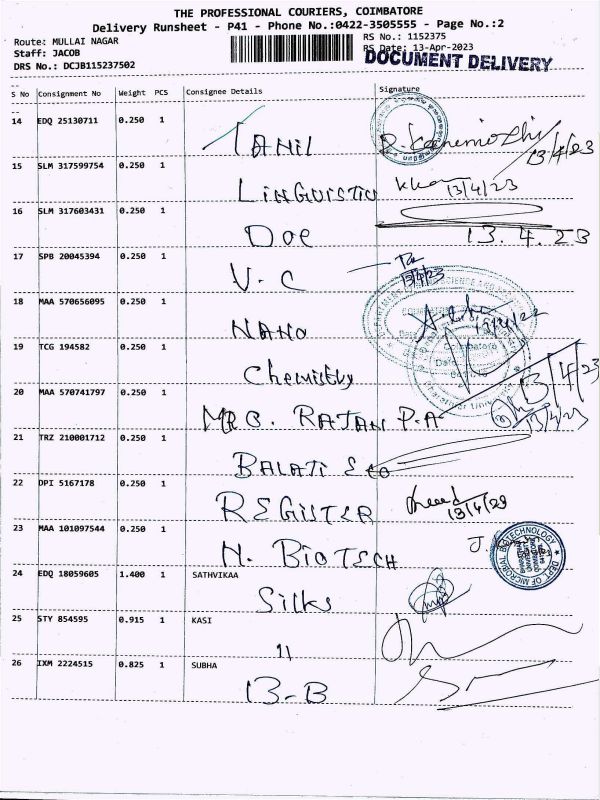 THE PROFESSIONAL COURIERS, COIMBATORE
Delivery Runsheet - P41 - Phone No.:0422-3505555 - Page No.:2
Route: MULLAI NAGAR
RS No.: 1152375
Staff: JACOB
RS Date: 13-Apr-2023
DRS No.: DCJB115237502
DOCUMENT DELIVERY
S No Consignment No Weight PCS Consignee Details Signature
14 EDQ 25130711 0.250 1
TAMIL
13/4/23
15 SLM 317599754 0.250 1
LINGUISTICS 13/4/23
16 SLM 317603431 0.250 1
DOE 13.4.23
17 SPB 20045394 0.250 1
V.C 13/4/23
18 MAA 570656095 0.250 1
NANO
19 TCG 194582 0.250 1
Chemistry 13/4/23
20 MAA 570741797 0.250 1
RAJAN P.A 13/4/23
21 TRZ 210001712 0.250 1
22 DPI 5167178 0.250 1
REGISTER 13/4/23
23 MAA 101097544 0.250 1
M. BIOTECH
DEPT OF MICROBIAL BIOTECHNOLOGY
24 EDQ 18059605 1.400 1 SATHVIKAA
Silks
25 STY 854595 0.915 1 KASI
11
26 IXM 2224515 0.825 1 SUBHA
13-B